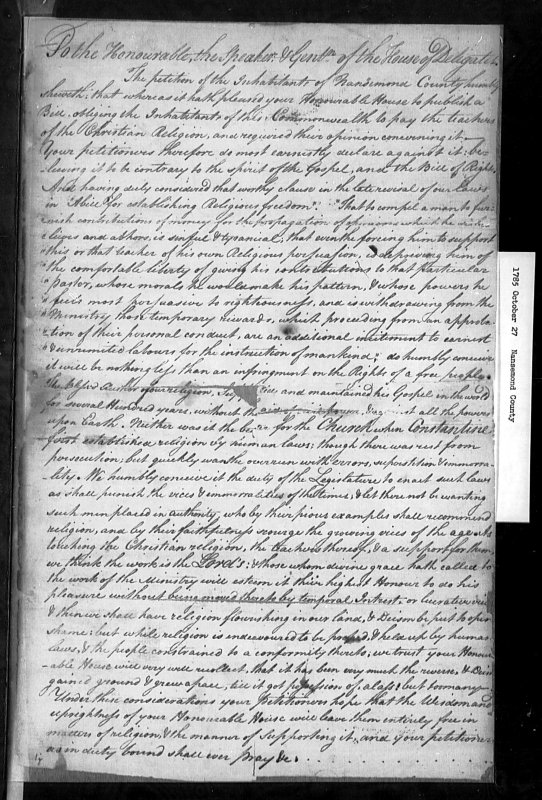 To the Honourable, the Speaker & Gentn. of the House of Delegates.
The petition of the Inhabitants of Nansemond County humbly
sheweth; that whereas it hath pleased your Honourable House to publish a
Bill, obliging the Inhabitants of this Commonwealth to pay the teachers
of the Christian Religion, and required their opinion concerning it.
Your petitioners therefore do most earnestly declare against it; be-
leiving it to be contrary to the spirit of the Gospel, and the Bill of Rights.
And having duly considered that worthy clause in the late revival of our Laws
in "A bill for establishing Religious freedom". "That to compel a man to fur-
nish contributions of money for the propagation of opinions which he disbe-
lieves and abhors, is sinful & tyranical; that even the forcing him to support
this or that teacher of his own Religious persuasion, is depriving him of
the comfortable liberty of giving his contributions to that particular
Pastor, whose morals he would make his pattern, & whose powers he
feels most persuasive to righteousness, and is withdrawing from the
Ministry those temporary rewards, which proceeding from an approba-
tion of their personal conduct, are an additional incitement to earnest
& unremitted labours for the instruction of mankind; do humbly conceive
it will be nothing less than an infringment on the Rights of a free people.
the blessed Author of our religion, and maintained his Gospel in the world
for several Hundred years, without the aid of civil power, at all the powers
upon Earth. Neither was it the for the Church, when Constantine
first established religion by human laws; though there was rest from
persecution; but quickly was the overrun with errors, superstition & immora-
lity. We humbly conceive it the duty of the Legislature to enact such laws
as shall punish the vices & immoralities of the times, & let there not be wanting
such men placed in authority, who by their pious examples shall recommend
religion, and by their faithfulness scourge the growing vices of the age. As
touching the Christian religion, the teachers thereof, & a support for them
we think the work is the Lord's: & those whom divine grace hath called to
the work of the Ministry will esteem it their highest Honour to do his
pleasure without being moved thereto by temporal Intrest, or lucrative views
& then we shall have religion flourishing in our land, & Deism be put to open
shame; but while religion is endeavoured to be & held up by human
laws, & the people constrained to a conformity thereto; we trust your Honour-
-able House will very well recollect, that it has been very much the reverse, & Deism
gained ground & grew apace, till it got possession of, alas! but too many.
Under these considerations your Petitioners hope that the Wisdom and
uprightness of your Honourable House will leave them entirely free in
matters of religion, & the manner of supporting it; and your petitioners
as in duty bound shall ever pray &c.
1785 October 27 Nansemond County